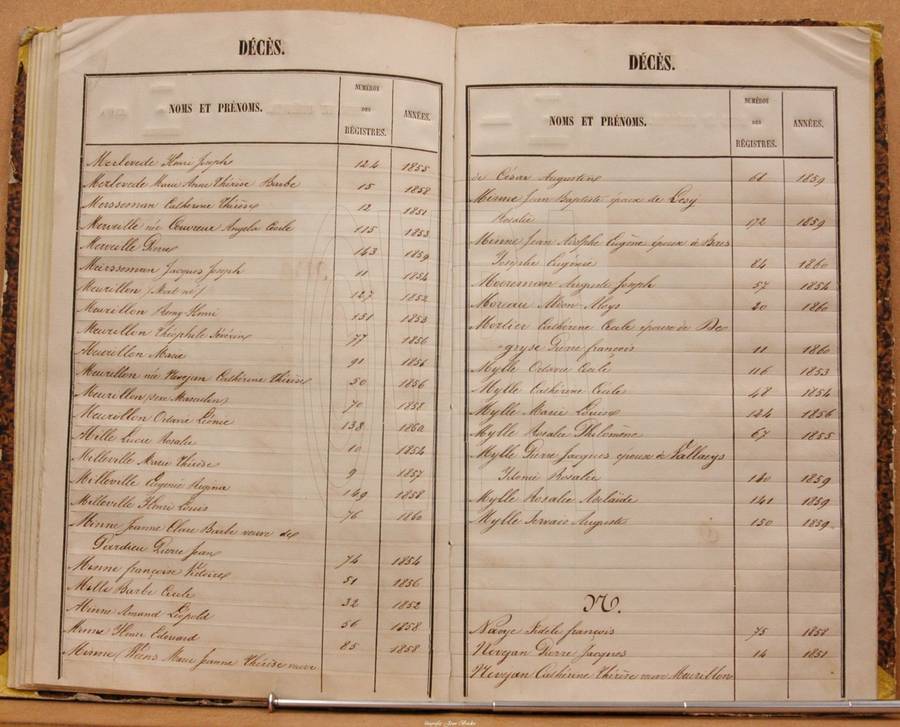 DÉCÈS.
NOMS ET PRÉNOMS. NUMÉROS DES RÉGISTRES. ANNÉES.
Merlevede Henri Joseph 124 1855
Merlevede Marie Anne Thérèse Barbe 15 1858
Mersseman Catherine Thérèse 12 1851
Merveille née Couvreur Angela Cécile 115 1853
Merveille Pierre 143 1859
Meirsseman Jacques Joseph 11 1854
Meurillon (Mort né) 127 1852
Meurillon Remy Henri 131 1853
Meurillon Théophile Séverin 77 1856
Meurillon Marie 91 1856
Meurillon née Nevejan Cathérine Thérèse 50 1856
Meurillon (sexe Masculin) 70 1858
Meurillon Octavie Léonie 138 1860
Mille Lucie Rosalie 10 1854
Milleville Marie Thérèse 9 1857
Milleville Eugenie Regina 149 1858
Milleville Henri Louis 76 1860
Minne Jeanne Clare Barbe veuve de
Dardieu Pierre Jean 74 1854
Minne françoise Victoire 51 1856
Mille Barbe Cecile 32 1852
Minne Amand Léopold 56 1858
Minne Henri Edouard 85 1858
Minne Marie Jeanne Thérèse veuve
DÉCÈS.
NOMS ET PRÉNOMS. NUMÉROS DES RÉGISTRES. ANNÉES.
de César Augustin 61 1859
Minne Jean Baptiste époux de Lesy
Rosalie 172 1859
Minne Jean Eugène époux à
Josephe Eugénie 84 1860
Moereman Auguste Joseph 57 1854
Moreau Aloys 30 1860
Mortier Cathérine Cecile épouse de De
gryse Pierre françois 11 1860
Mylle Octavie Cecile 116 1853
Mylle Cathérine Cecile 48 1854
Mylle Marie Louise 134 1856
Mylle Rosalie Philomène 67 1855
Mylle Pierre Jacques époux à Vallaeys
Idonie Rosalie 140 1859
Mylle Rosalie Adelaïde 141 1859
Mylle Gervais Auguste 150 1859
N.
Naeye Fidele françois 75 1858
Nevejan Pierre Jacques 14 1851
Nevejan Cathérine Thérèse veuve Meurillon